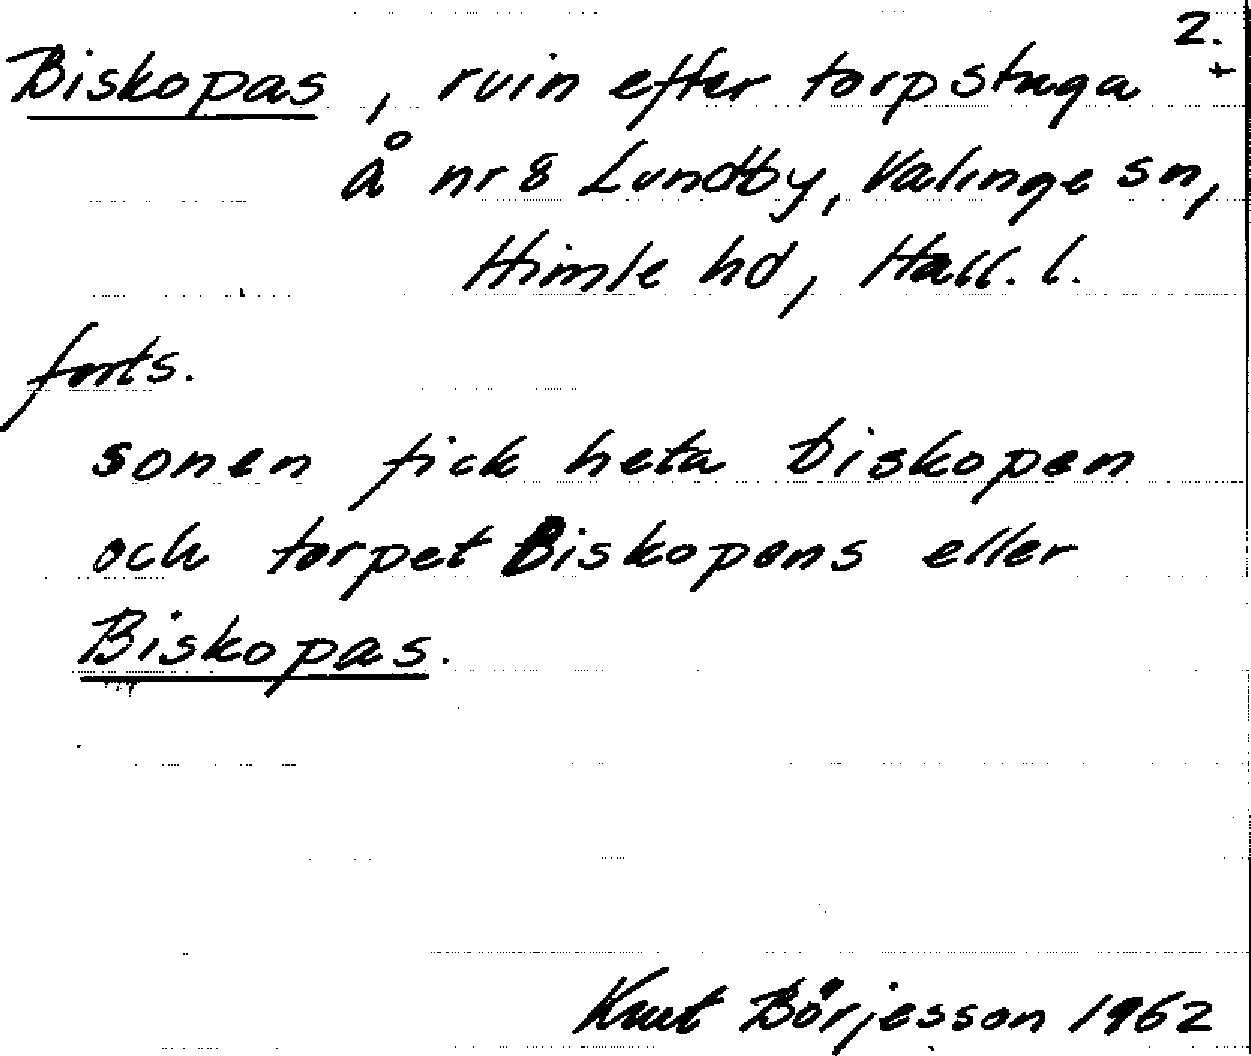 2.
Biskopas, ruin efter torpstuga +
å nr 8 Lundby, Valinge sn,
Himle hd, Hall. l.
forts.
sonen fick heta biskopen
och torpet Biskopens eller
Biskopas.
Knut Börjesson 1962